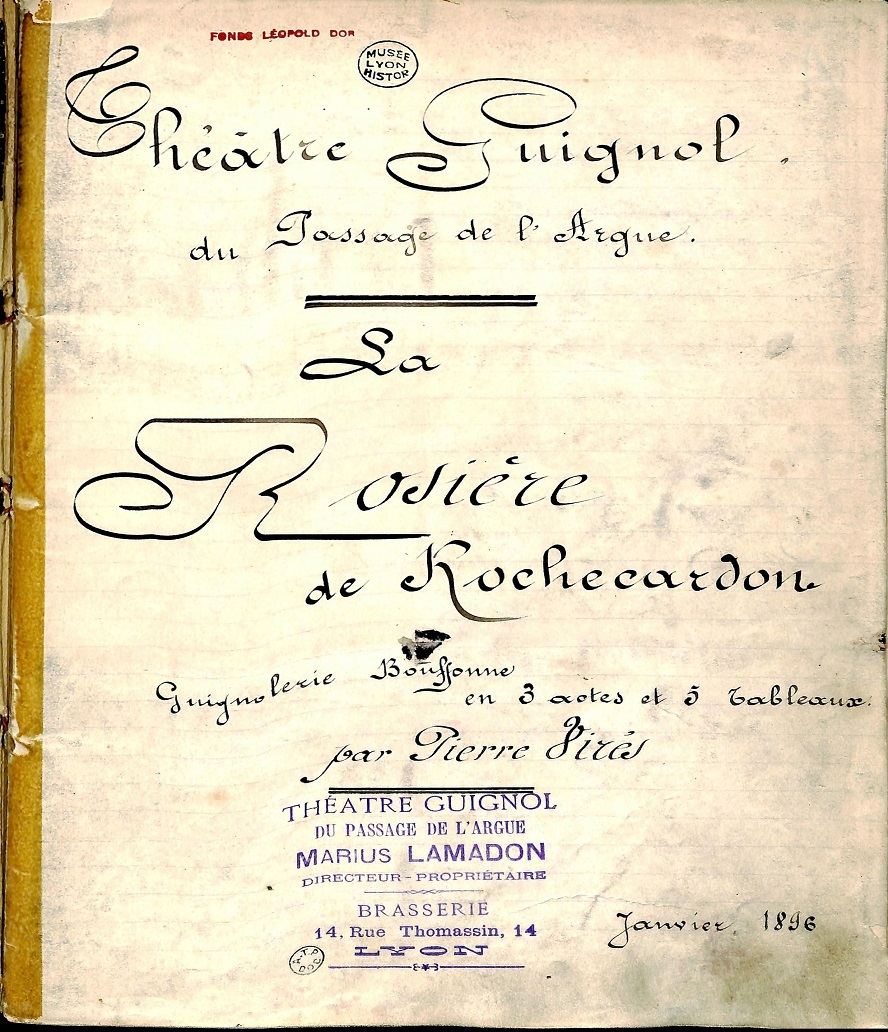 FONDS LÉOPOLD DOR
MUSEE
LYON
HISTOR
Théâtre Guignol.
du Passage de l'Argue.
La
Rosière
de Rochecardon
Guignolerie Bouffonne
en 3 actes et 5 tableaux.
par Pierre Virès
THÉATRE GUIGNOL
DU PASSAGE DE L'ARGUE
MARIUS LAMADON
DIRECTEUR-PROPRIÉTAIRE
BRASSERIE
14, Rue Thomassin, 14
LYON
Janvier 1896
A.T.P
DOC